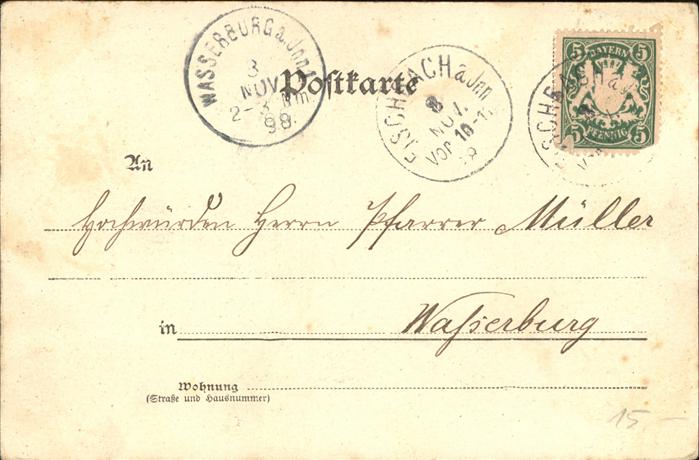 WASSERBURG a. Inn
3
NOV.
2-3 Nm.
98.
Postkarte
FISCHBACH a. Inn
3
NOV.
Vor 10-11
BAYERN
5 5
5 PFENNIG 5
An
Hochwürden Herrn Pfarrer Müller
in Wasserburg
Wohnung
(Straße und Hausnummer)
15.-